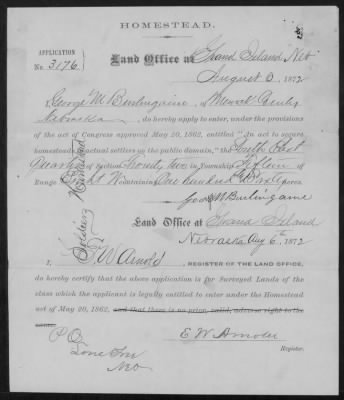 HOMESTEAD.
APPLICATION
No. 3176
Land Office at Grand Island, Neb
August 6 1872
I, George M Burlingame, of
Nebraska do hereby apply to enter, under the provisions
of the act of Congress approved May 20, 1862, entitled "An act to secure
homesteads to actual settlers on the public domain," the South East
Quarter of Section Twenty Two in Township Fifteen of
Range Eight W containing One hundred & Sixty acres.
Soldiers Homestead
Geo M Burlingame
Land Office at Grand Island
Nebraska Aug 6th 1872
I, E W Arnold, REGISTER OF THE LAND OFFICE,
do hereby certify that the above application is for Surveyed Lands of the
class which the applicant is legally entitled to enter under the Homestead
act of May 20, 1862, and that there is no prior, valid, adverse right to the
same.
E W Arnold
Register.
P O
Lone Tree
Neb